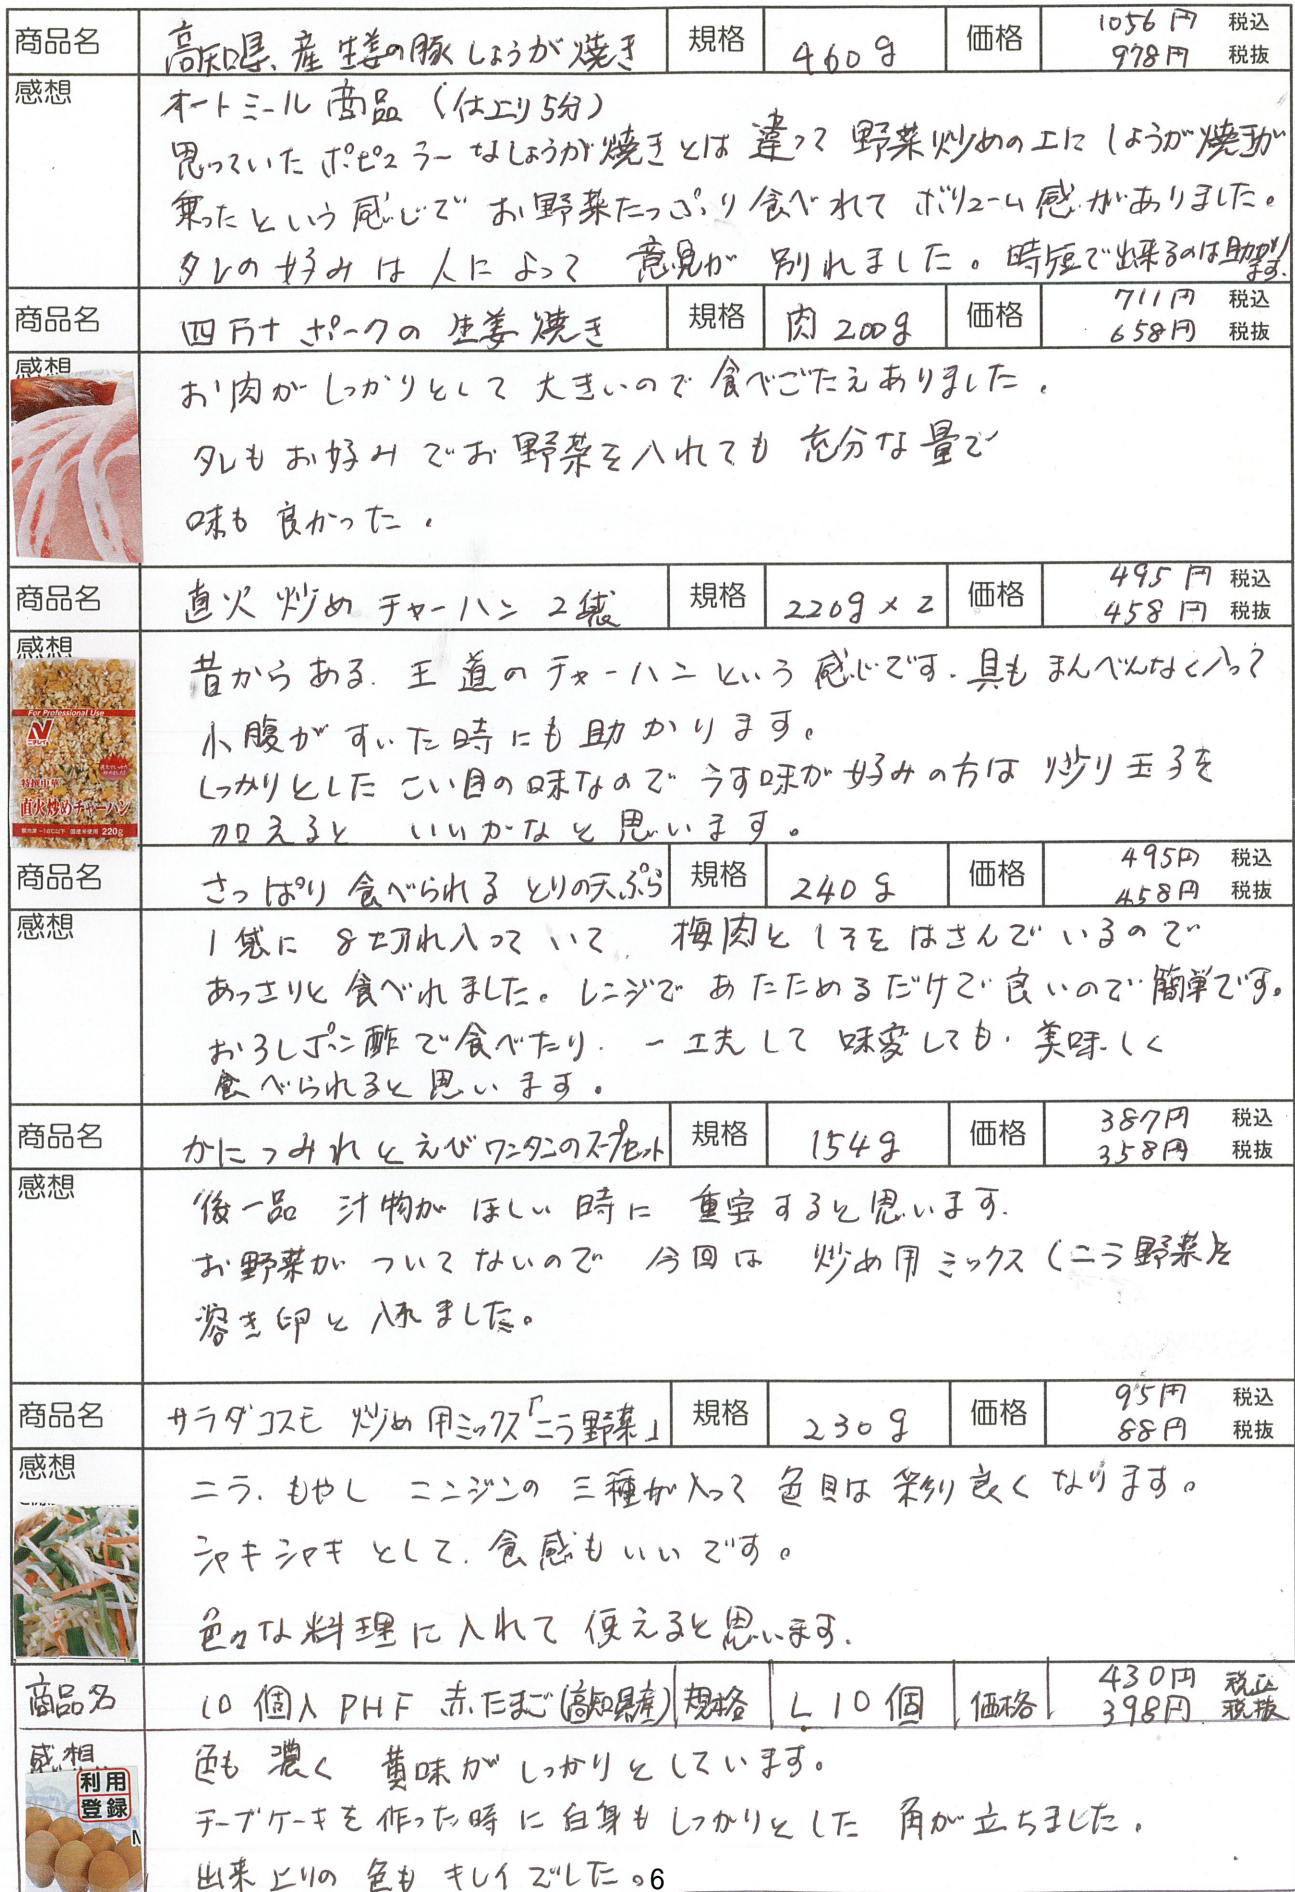 商品名 高知県産生姜の豚しょうが焼き 規格 460g 価格 1056円 税込
978円 税抜
感想
オートミール商品(仕上り5分)
思っていたポピュラーなしょうが焼きとは違って野菜炒めの上にしょうが焼きが
乗ったという感じでお野菜たっぷり食べれてボリューム感がありました。
タレの好みは人によって意見が別れました。時短で出来るのは助かります。
商品名 四万十ポークの生姜焼き 規格 肉200g 価格 711円 税込
658円 税抜
感想
お肉がしっかりとして大きいので食べごたえありました。
タレもお好みでお野菜を入れても充分な量で
味も良かった。
商品名 直火炒めチャーハン2袋 規格 220g×2 価格 495円 税込
458円 税抜
感想
昔からある、王道のチャーハンという感じです。具もまんべんなく入って
小腹がすいた時にも助かります。
しっかりとしたこい目の味なのでうす味が好みの方は炒り玉子を
加えるといいかなと思います。
For Professional Use
ニチレイ
特撰中華
直火炒めチャーハン
220g
商品名 さっぱり食べられるとりの天ぷら 規格 240g 価格 495円 税込
458円 税抜
感想
1袋に8切れ入っていて 梅肉としそをはさんでいるので
あっさりと食べれました。レンジであたためるだけで良いので簡単です。
おろしポン酢で食べたり、一工夫して味変しても、美味しく
食べられると思います。
商品名 かにつみれとえびワンタンのスープセット 規格 154g 価格 387円 税込
358円 税抜
感想
後一品 汁物がほしい時に重宝すると思います。
お野菜がついてないので 今回は 炒め用ミックス(ニラ野菜)を
溶き卵と入れました。
商品名 サラダコスモ 炒め用ミックス「ニラ野菜」 規格 230g 価格 95円 税込
88円 税抜
感想
ニラ、もやし ニンジンの三種が入って色目は彩り良くなります。
シャキシャキとして、食感もいいです。
色々な料理に入れて使えると思います。
商品名 10個入PHF 赤たまご(高知県産) 規格 L10個 価格 430円 税込
398円 税抜
感想
利用
登録
色も濃く 黄味がしっかりとしています。
チーズケーキを作った時に白身もしっかりとした 角が立ちました。
出来上りの色もキレイでした。
6